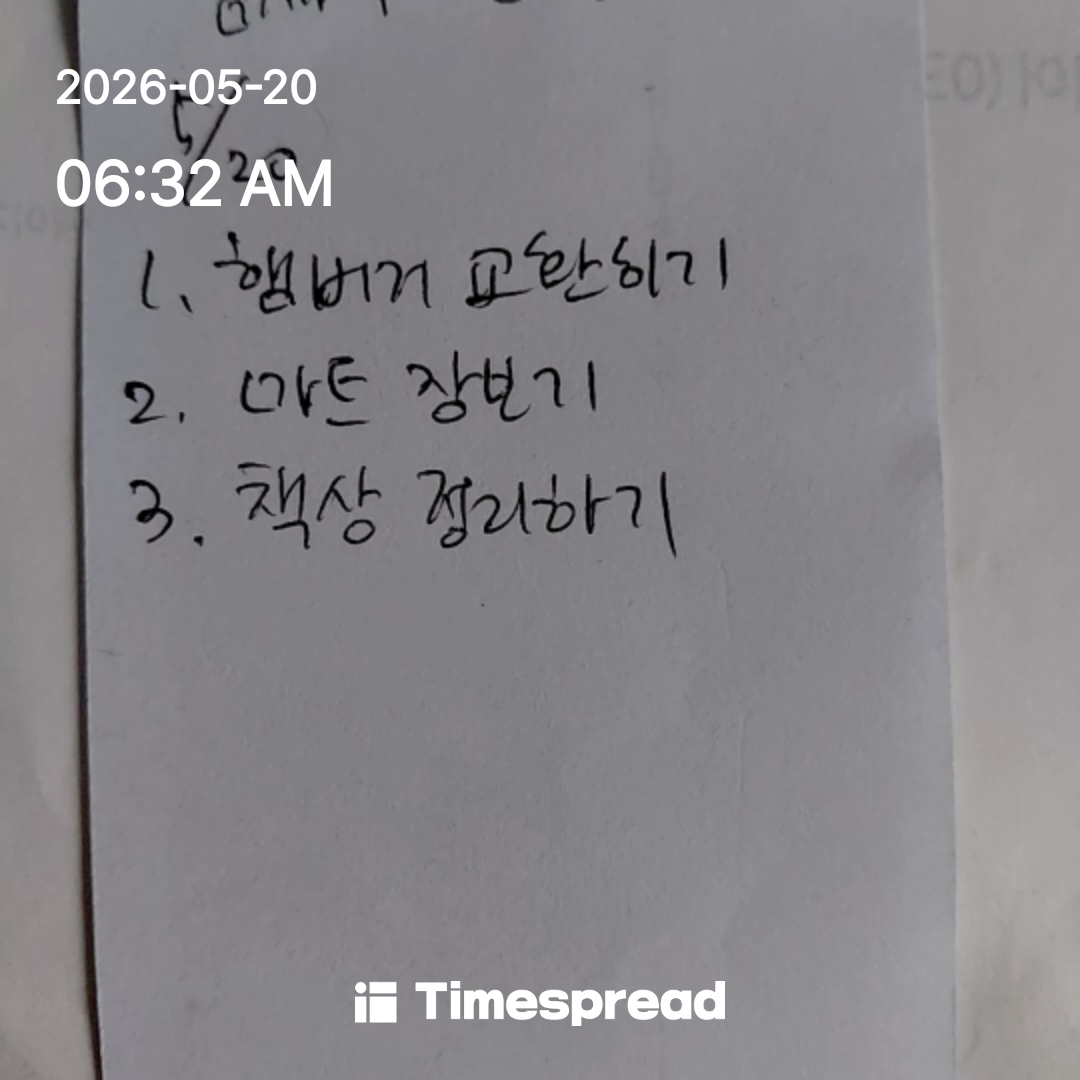 2026-05-20
5/20
06:32 AM
1. 햄버거 교환하기
2. 마트 장보기
3. 책상 정리하기
Timespread